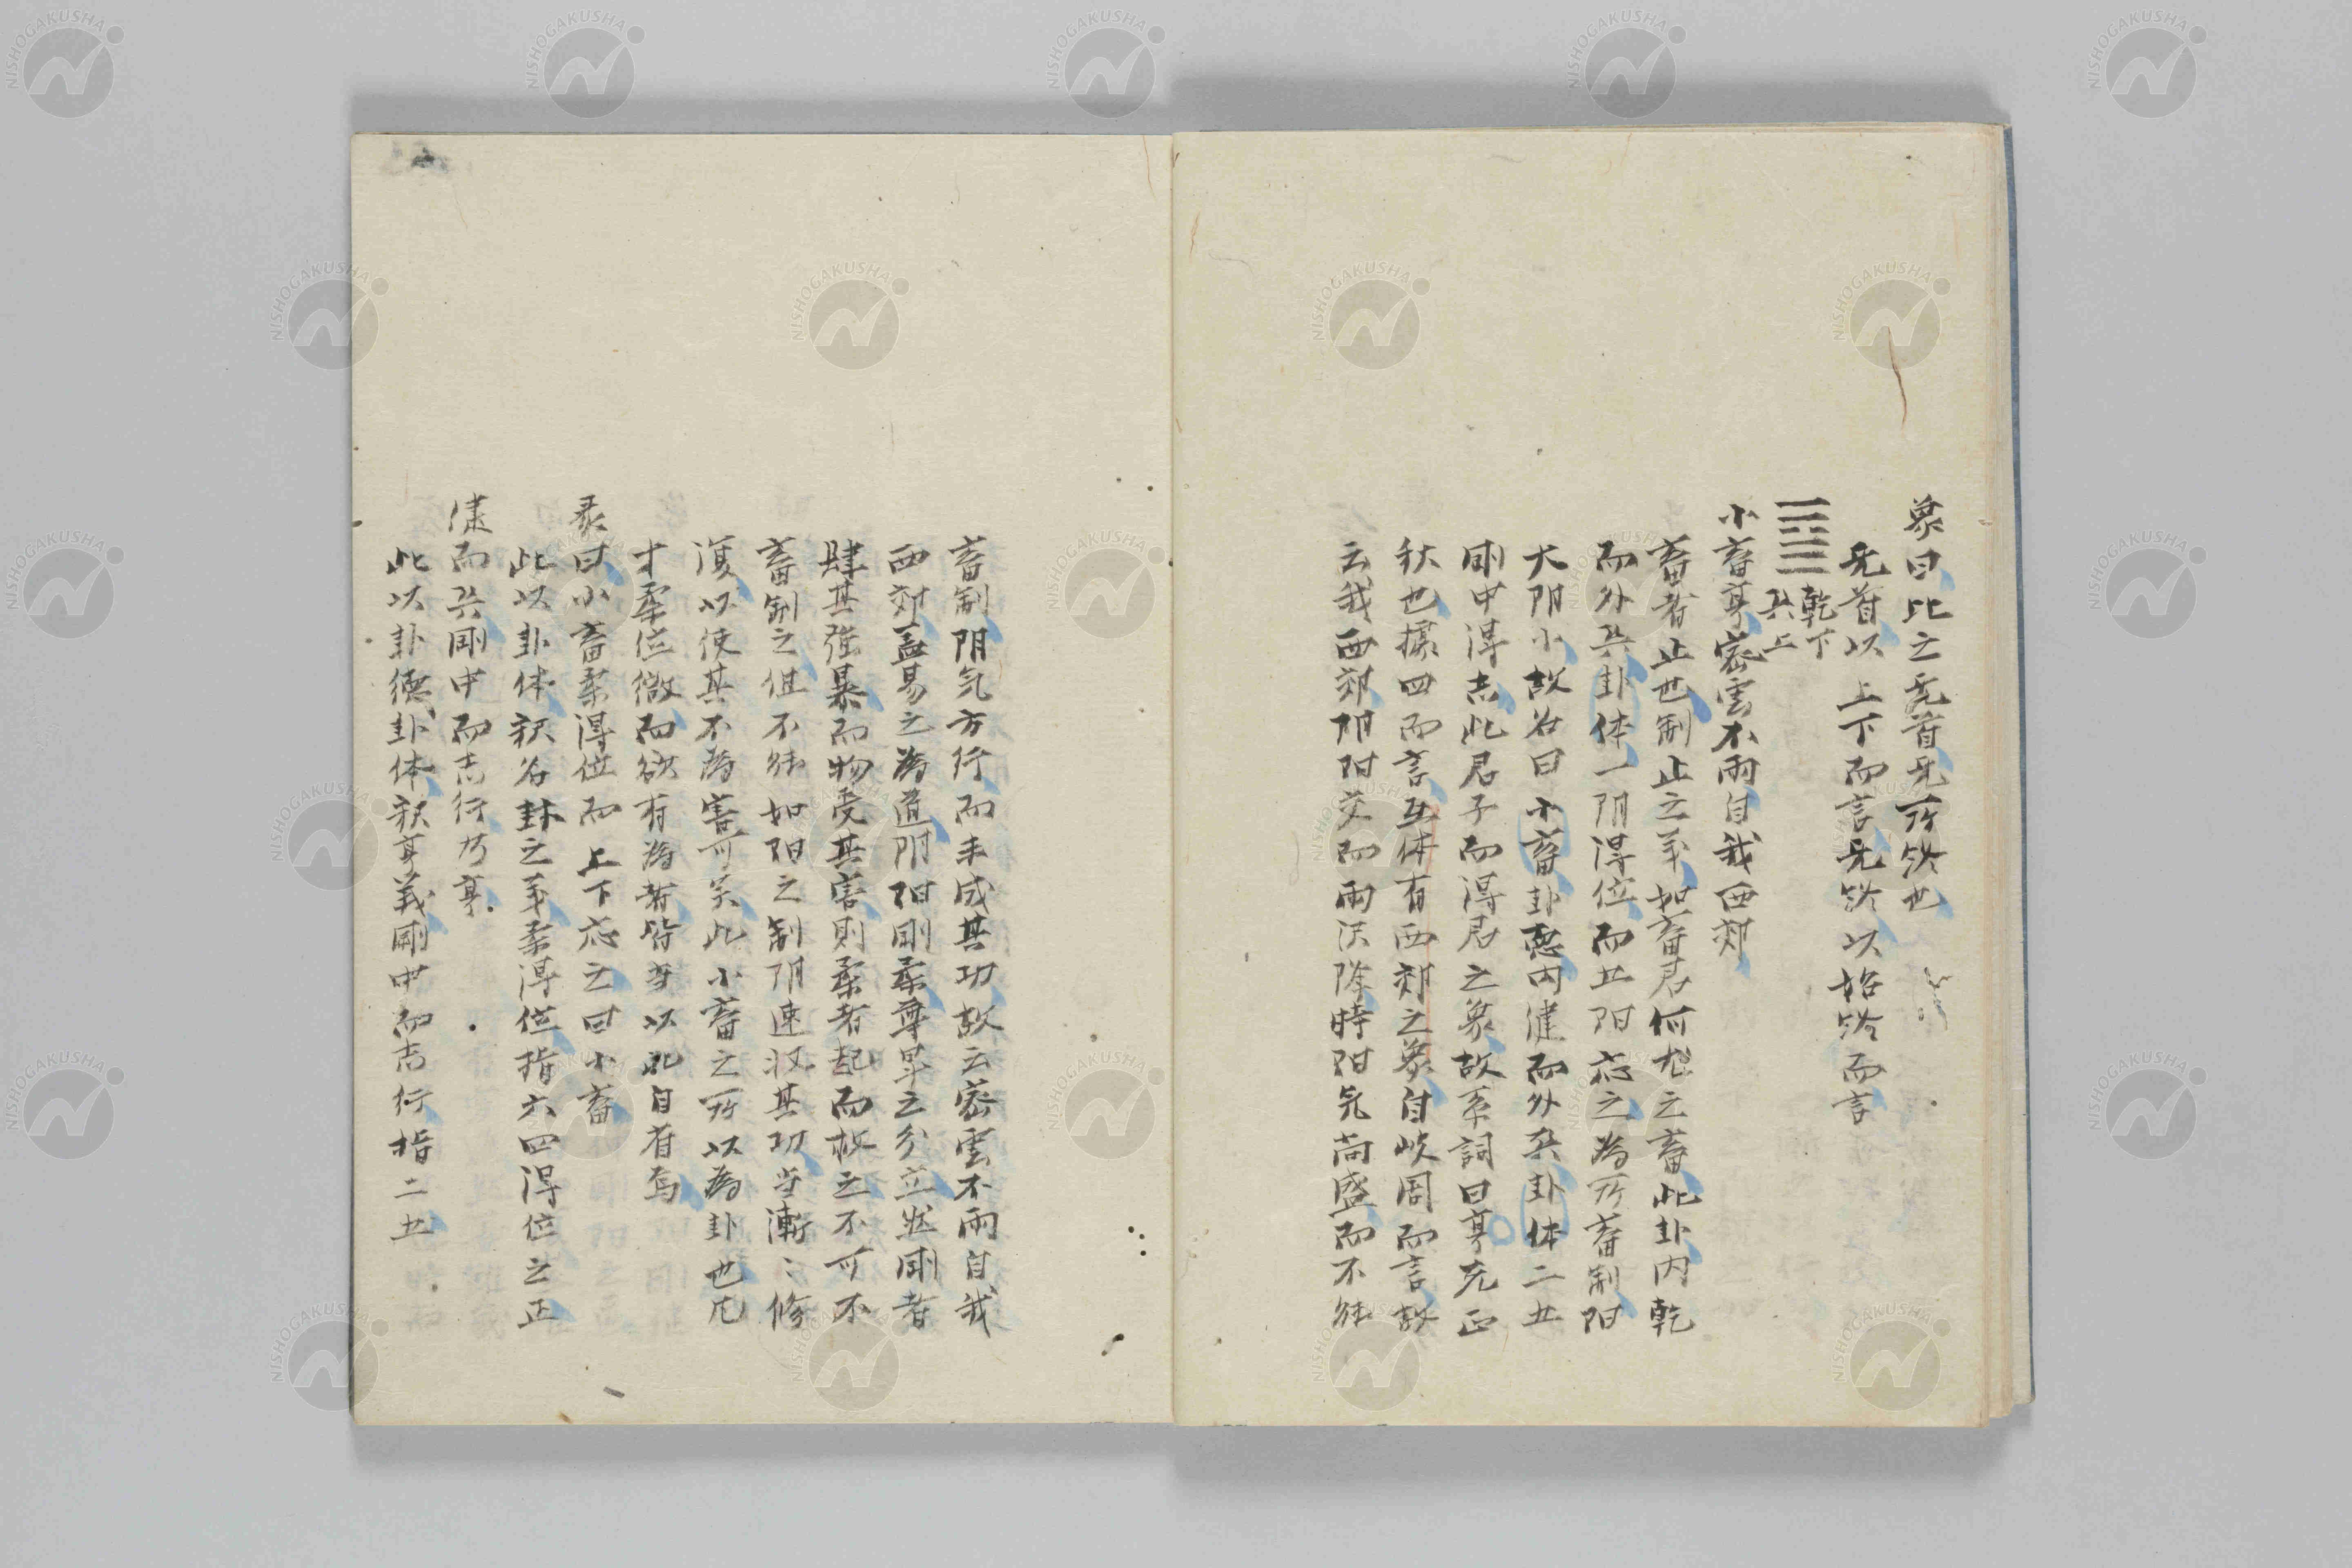 象曰比之无首无所終也
无首以上下而言无終以始終而言
乾下
巽上
小畜亨密雲不雨自我西郊
畜者止也制止之茅如畜君何尤之畜此卦内乾
而外巽卦体一阴得位而五阳応之為所畜制阳
大阴小故名曰小畜卦悳内健而外巽卦体二五
剛中得志此君子而得君之象故系詞曰亨充正
秋也據四而言互体有西郊之象自岐周而言故
云我西郊阴阳交而雨沢降時阳気尚盛而不能
畜制阴気方行而未成其功故云密雲不雨自我
西郊盖易之為道阴阳剛柔尊卑之分立
肆其強暴而物受其害則柔者起而
之不可不
畜制之但不能如阳之制阴速收其功当漸〻修
復以使其不為害可矣此小畜之所以為卦也凡
才卑位微而欲有為者皆当以此自省焉
彖曰小畜柔得位而上下応之曰小畜
此以卦体釈名卦之茅柔得位指六四得位之正
健而巽剛中而志行乃亨
此以卦德卦体釈亨義剛中而志行指二五
NISHOGAKUSHA